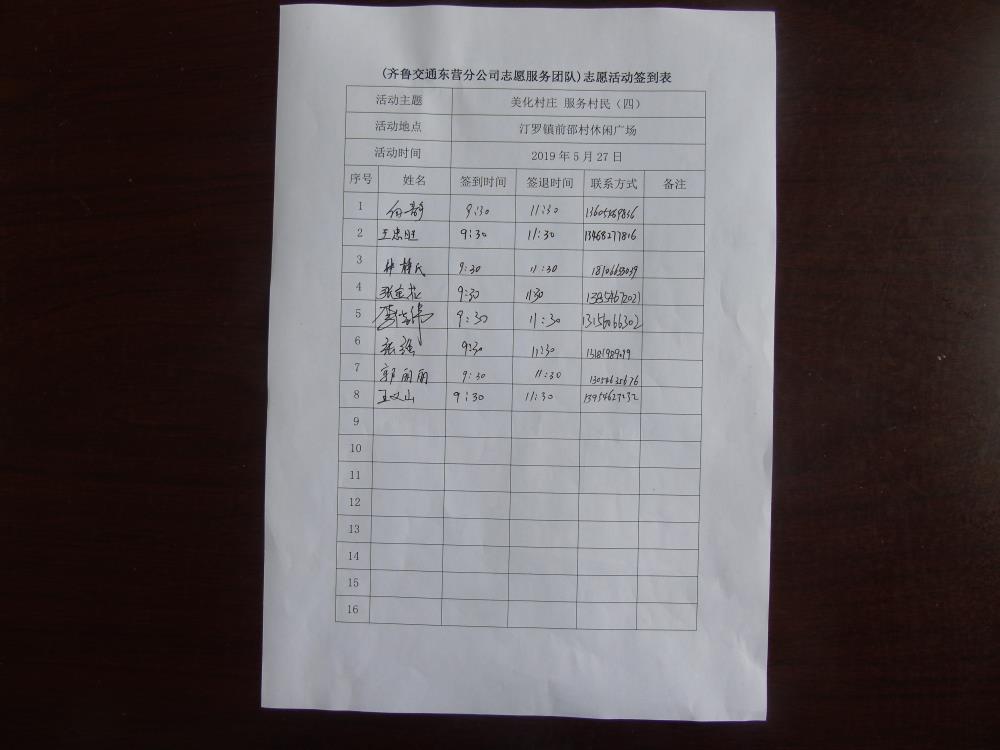 (齐鲁交通东营分公司志愿服务团队)志愿活动签到表
活动主题 美化村庄 服务村民（四）
活动地点 汀罗镇前邵村休闲广场
活动时间 2019年5月27日
序号 姓名 签到时间 签退时间 联系方式 备注
1 9:30 11:30
2 王忠旺 9:30 11:30 13468277816
3 9:30 11:30
4 9:30 1130
5 9:30 11:30 13156066302
6 张强 9:30 11:30
7 郭丽丽 9:30 11:30
8 王义山 9:30 11:30
9
10
11
12
13
14
15
16